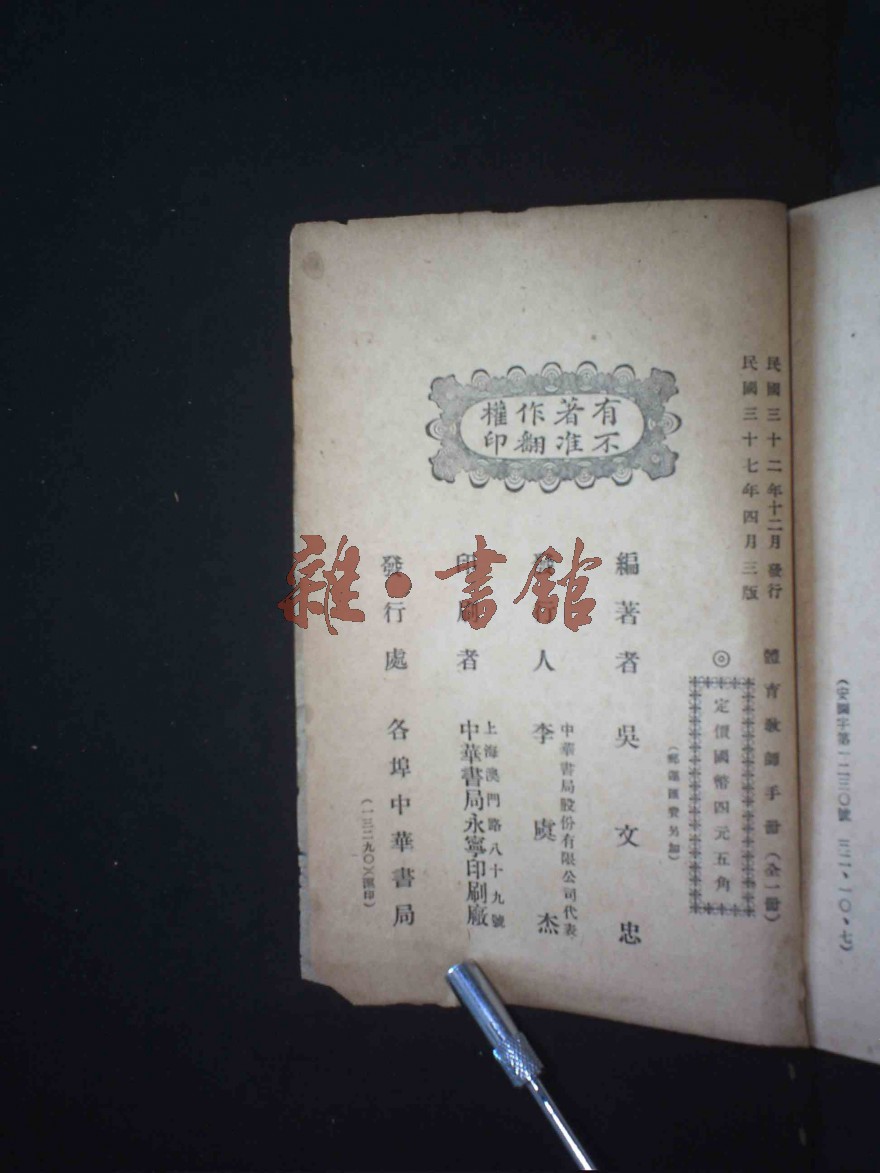 民國三十二年十二月發行
民國三十七年四月三版
體育教師手冊(全一冊)
◎定價國幣四元五角
(郵運匯費另加)
有著作權
不准翻印
編著者 吳文忠
發行人 李虞杰
中華書局股份有限公司代表
印刷者 中華書局永寧印刷廠
上海澳門路八十九號
發行處 各埠中華書局
(一三二九〇)(滬印)
雜·書館